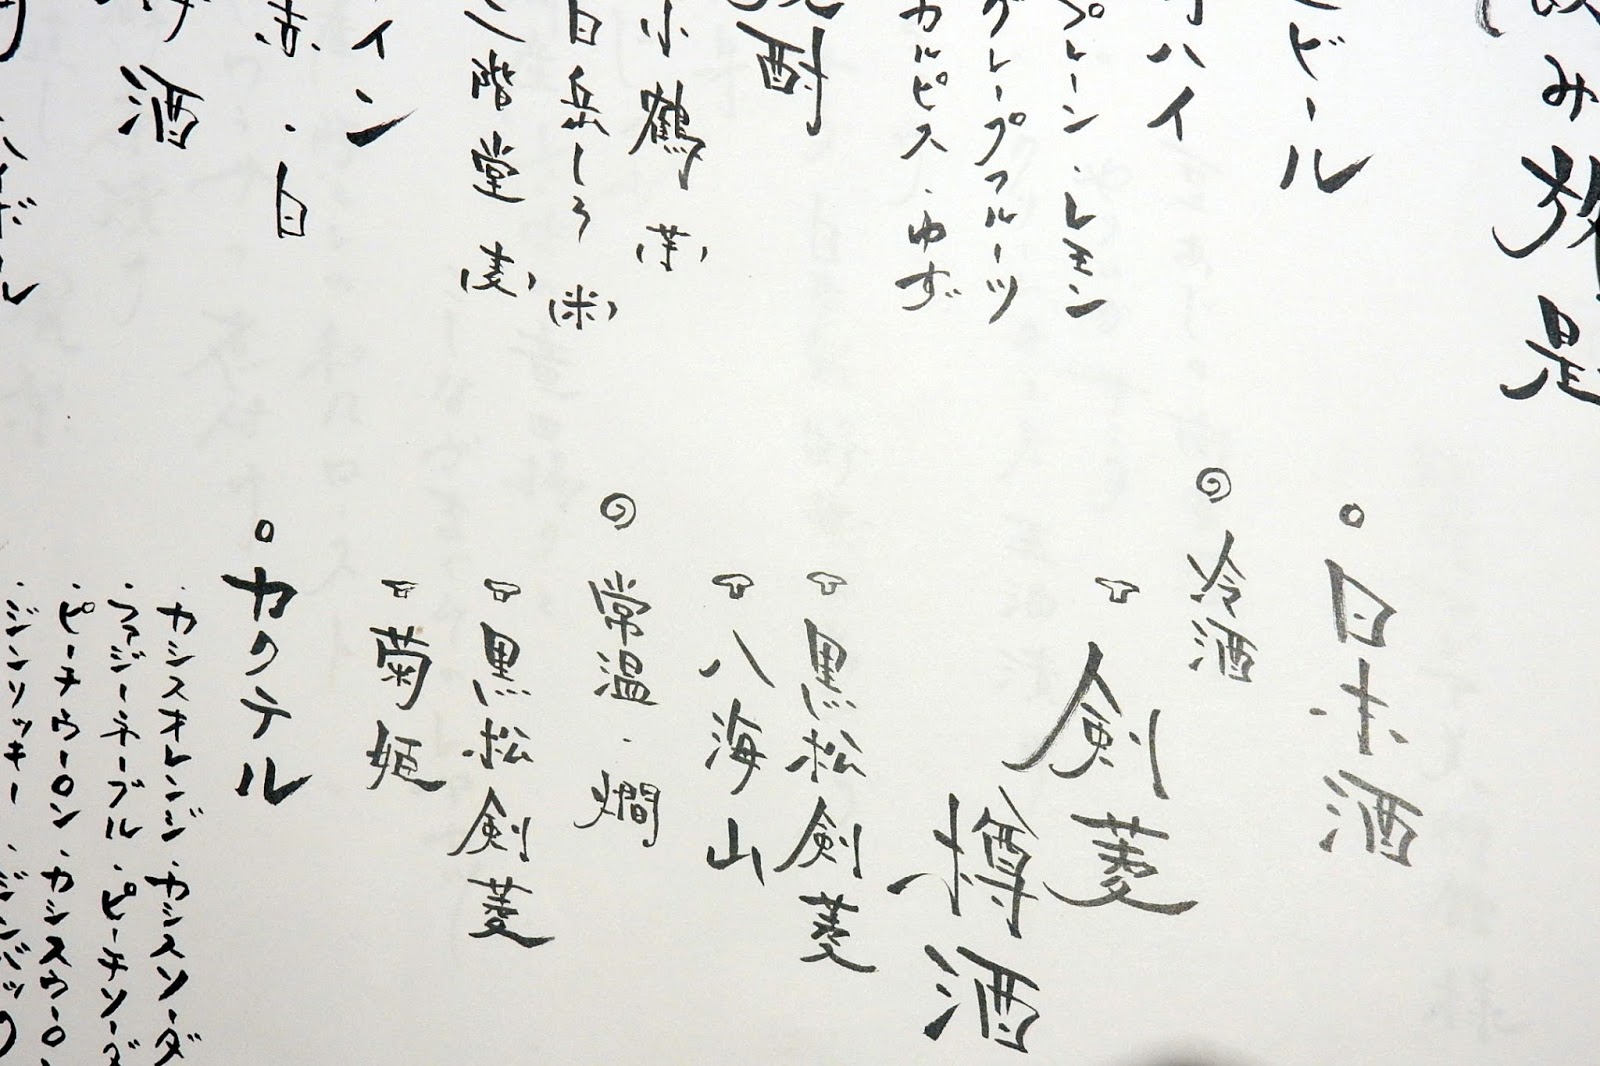 飲み放題
ビール
酎ハイ
プレーン・レモン
グレープフルーツ
カルピス・ゆず
焼酎
小鶴(芋)
白岳しろ(米)
二階堂(麦)
ワイン
赤・白
酒
ハイボール
日本酒
冷酒
剣菱
樽酒
黒松剣菱
八海山
常温・燗
黒松剣菱
菊姫
カクテル
・カシスオレンジ・カシスソーダ
・ファジーネーブル・ピーチソーダ
・ピーチウーロン・カシスウーロン
・ジンリッキー・ジンバック